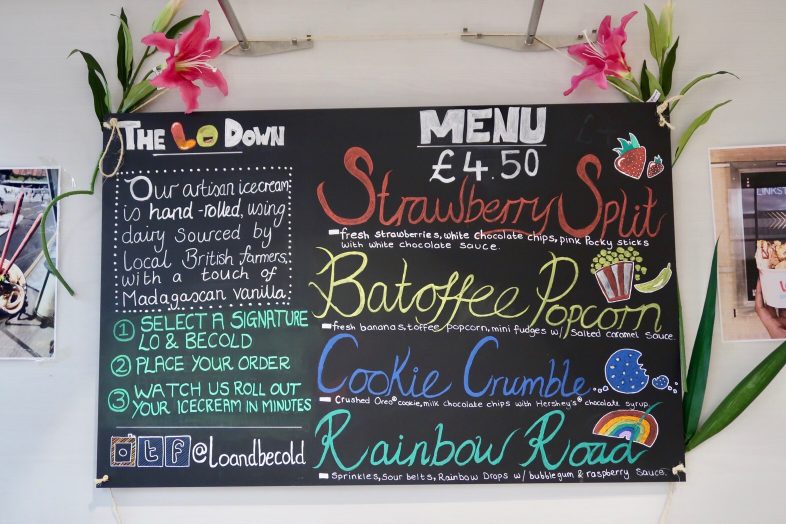 THE LO DOWN
Our artisan icecream
is hand-rolled, using
dairy sourced by
local British farmers,
with a touch of
Madagascan vanilla.
1 SELECT A SIGNATURE
LO & BECOLD
2 PLACE YOUR ORDER
3 WATCH US ROLL OUT
YOUR ICECREAM IN MINUTES
@loandbecold
MENU
£4.50
Strawberry Split
fresh strawberries, white chocolate chips, pink Pocky sticks
with white chocolate sauce.
Batoffee Popcorn
fresh bananas, toffee popcorn, mini fudges w/ Salted caramel Sauce.
Cookie Crumble
Crushed Oreo® cookie, milk chocolate chips with Hershey's® chocolate syrup
Rainbow Road
Sprinkles, Sour belts, Rainbow Drops w/ bubblegum & raspberry Sauce.
LINKST